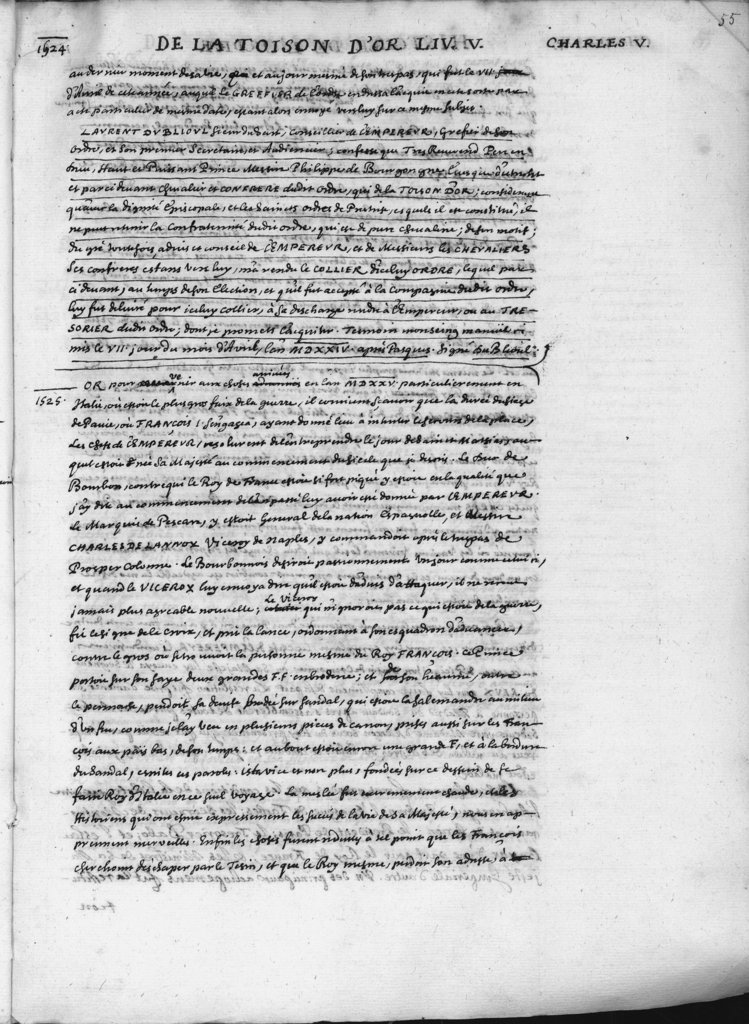 55
1524
DE LA TOISON D'OR LIV. V. CHARLES V.
au dernier moment de sa vie, et au jour mesme de son trespas, qui fut le VII
d'Avril de cette année, auquel le GREFFIER de l'ordre
acte particulier de mesme date, estant alors envoyé vers luy sur ce mesme subjet.
LAURENT DU BLIOUL Sr. du Sart, Conseiller de L'EMPEREUR, Greffier de son
ordre, et son premier Secretaire, et Audiencier; confesse que Tres Reverend Pere en
Dieu, Haut et Puissant Prince Messire Philippe de Bourgongne, Evesque d'Utrecht
et par ci devant Chevalier et CONFRERE dudit ordre, qui de la TOISON D'OR; considerant
qu'avec la dignité Episcopale, et les saincts ordres de Prestrise, esquels il est constitué, il
ne peut retenir la Confraternité dudit ordre, qui est de pure chevalerie; de son motif;
du gré toutefois advis et conseil de L'EMPEREUR, et de Messieurs les CHEVALIERS
Ses confreres estans vers luy, m'a rendu le COLLIER d'iceluy ORDRE, lequel par
ci devant, au temps de son Election, et qu'il fut accepté à la Compagnie dudit ordre,
luy fut delivré pour iceluy collier, à sa descharge rendre à l'Empereur, ou au TRE-
SORIER dudit ordre; dont je promets l'acquiter. Tesmoin mon seing manuel ci
mis le VIIe jour du mois d'Avril, l'an MDXXIV. apres Pasques. Signé Du Blioul.
1525.
OR pour venir aux choses arrivées en l'an MDXXV. particulierement en
Italie, où estoit le plus gros faix de la guerre, il convient sçavoir que la durée du siege
de Pavie, où FRANÇOIS I. s'engagea, ayant donné lieu à
Les Chefs de L'EMPEREUR, resolurent de l'entreprendre le jour de Sainct Matthias au-
quel estoit né sa Majesté au commencement du siecle que je decris. Le Duc de
Bourbon, contre qui le Roy de France estoit si fort piqué y estoit en la qualité que
j'ay dit au commencement de luy avoir esté donnée par L'EMPEREUR.
Le Marquis de Pescara, y estoit General de la nation Espagnolle, et Messire
CHARLES DE LANNOY Viceroy de Naples, y commandoit apres le trespas de
Prosper Colonne. Le Bourbonnois desiroit passionnement voir jour comme celui ci,
et quand le VICEROY luy envoya dire qu'il estoit d'advis d'attaquer, il ne receut
jamais plus agreable nouvelle; Le Viceroy qui n'ignoroit pas ce qui estoit de la guerre,
fit le signe de la Croix, et prit la lance, ordonnant à son esquadron d'advancer,
contre le gros où se trouvoit la personne mesme du Roy FRANÇOIS. Ce Prince
portoit sur son saye deux grandes F.F. en broderie; et de son heaume, outre
le pennache, pendoit sa devise brodée sur sandal, qui estoit la salemandre au milieu
d'un feu, comme je l'ay veu en plusieurs pieces de canons, prises aussi sur les Fran-
çois aux païs bas, de son temps: et au bout estoit encore une grande F, et à la bordure
du sandal, escrites ces paroles: ista vice et non plus, fondées sur ce dessein de se
faire Roy d'Italie en ce seul voyage. La meslée fut extremement chaude, et les
Historiens qui ont escrit expressement les succes de la vie de Sa Majesté, nous en ap-
prennent merveilles. Enfin les choses furent reduites à tel point que les François
cherchoient d'eschaper par le Tesin, et que le Roy mesme, perdoit son adresse, à